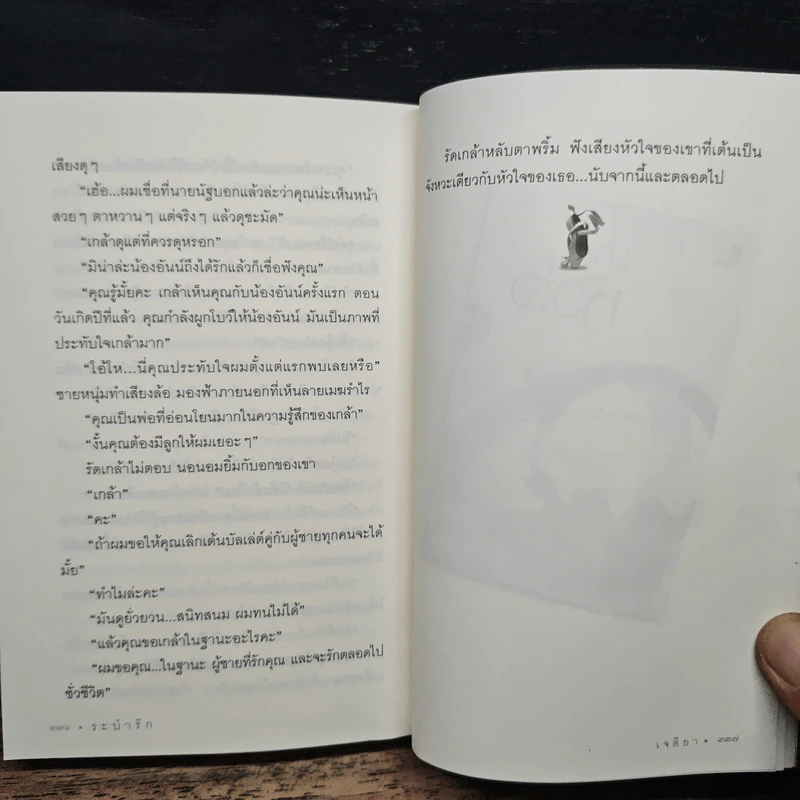 เสียงดุๆ
“เฮ้อ...ผมเชื่อที่นายนัฐบอกแล้วล่ะว่าคุณน่ะเห็นหน้า
สวยๆ ตาหวานๆ แต่จริงๆ แล้วดุชะมัด”
“เกล้าดุแต่ที่ควรดุหรอก”
“มิน่าล่ะน้องอันน์ถึงได้รักแล้วก็เชื่อฟังคุณ”
“คุณรู้มั้ยคะ เกล้าเห็นคุณกับน้องอันน์ครั้งแรก ตอน
วันเกิดปีที่แล้ว คุณกำลังผูกโบว์ให้น้องอันน์ มันเป็นภาพที่
ประทับใจเกล้ามาก”
“โอ้โห...นี่คุณประทับใจผมตั้งแต่แรกพบเลยหรือ”
ชายหนุ่มทำเสียงล้อ มองฟ้าภายนอกที่เห็นลายเมฆรำไร
“คุณเป็นพ่อที่อ่อนโยนมากในความรู้สึกของเกล้า”
“งั้นคุณต้องมีลูกให้ผมเยอะๆ”
รัดเกล้าไม่ตอบ นอนอมยิ้มกับอกของเขา
“เกล้า”
“คะ”
“ถ้าผมขอให้คุณเลิกเต้นบัลเล่ต์คู่กับผู้ชายทุกคนจะได้
มั้ย”
“ทำไมล่ะคะ”
“มันดูยั่วยวน...สนิทสนม ผมทนไม่ได้”
“แล้วคุณขอเกล้าในฐานะอะไรคะ”
“ผมขอคุณ...ในฐานะ ผู้ชายที่รักคุณ และจะรักตลอดไป
ชั่วชีวิต”
๓๓๖ • ระบำรัก
รัดเกล้าหลับตาพริ้ม ฟังเสียงหัวใจของเขาที่เต้นเป็น
จังหวะเดียวกับหัวใจของเธอ...นับจากนี้และตลอดไป
เจติยา • ๓๓๗